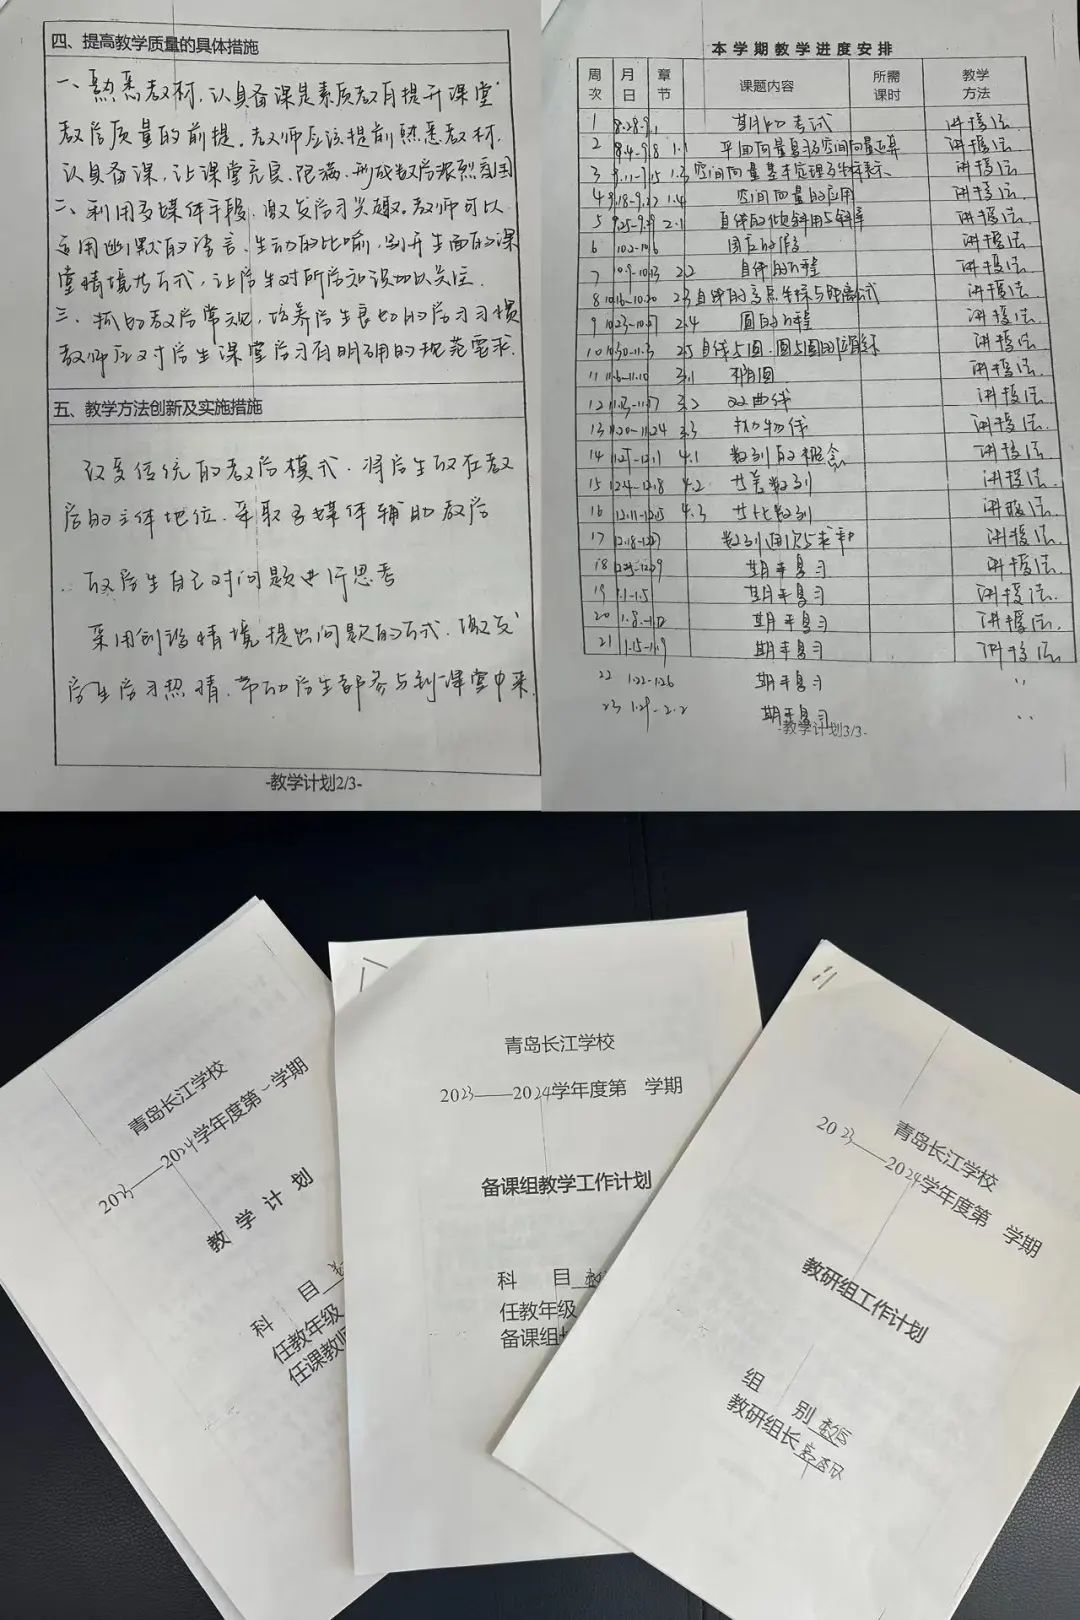 四、提高教学质量的具体措施
一、熟悉教材,认真备课是素质教育提升课堂
教学质量的前提。教师应该提前熟悉教材.
认真备课,让课堂充实、饱满、形成教学浓烈氛围
二、利用多媒体手段,激发学习兴趣。教师可以
运用幽默的语言、生动的比喻,别开生面的课
堂情境等方式,让学生对所学知识加以关注.
三、抓好教学常规,培养学生良好的学习习惯
教师应对学生课堂学习有明确的规范要求.
五、教学方法创新及实施措施
改变传统的教学模式.将学生放在教
学的主体地位.采取多媒体辅助教学
学生自己对问题进行思考
采用创设情境提出问题的方式.激发
学生学习热情,带动学生都参与到课堂中来.
-教学计划2/3-
本学期教学进度安排
周次 月日 章节 课题内容 所需课时 教学方法
1 8.28-9.1 期初考试 讲授法
2 9.8 1.1 平面向量复习及空间向量运算 讲授法
3 9.11-9.15 1.3 空间向量基本定理及坐标表示 讲授法
4 9.18-9.22 1.4 空间向量的应用 讲授法
5 9.25-9.29 2.1 直线的倾斜角与斜率 讲授法
6 10.2-10.6 国庆放假 讲授法
7 10.9-10.13 2.2 直线的方程 讲授法
8 10.16-10.20 2.3 直线的交点坐标与距离公式 讲授法
9 10.23-10.27 2.4 圆的方程 讲授法
10 10.30-11.3 2.5 直线与圆、圆与圆的位置关系 讲授法
11 11.6-11.10 3.1 椭圆 讲授法
12 11.13-11.17 3.2 双曲线 讲授法
13 11.20-11.24 3.3 抛物线 讲授法
14 11.27-12.1 4.1 数列的概念 讲授法
15 12.4-12.8 4.2 等差数列 讲授法
16 12.11-12.15 4.3 等比数列 讲授法
17 12.18-12.22 数列通项与求和 讲授法
18 12.25-12.29 期末复习 讲授法
19 1.1-1.5 期末复习 讲授法.
20 1.8-1.12 期末复习 讲授法.
21 1.15-1.19 期末复习 讲授法.
22 1.22-1.26 期末复习 〃
23 1.29-2.2 期末复习 〃
-教学计划3/3-
青岛长江学校
2023——2024学年度第一学期
教学计划
科 目
任教年级
任课教师
青岛长江学校
2023——2024学年度第 学期
备课组教学工作计划
科 目 数
任教年级
备课组
青岛长江学校
2023——2024学年度第 学期
教研组工作计划
组 别 数学
教研组长